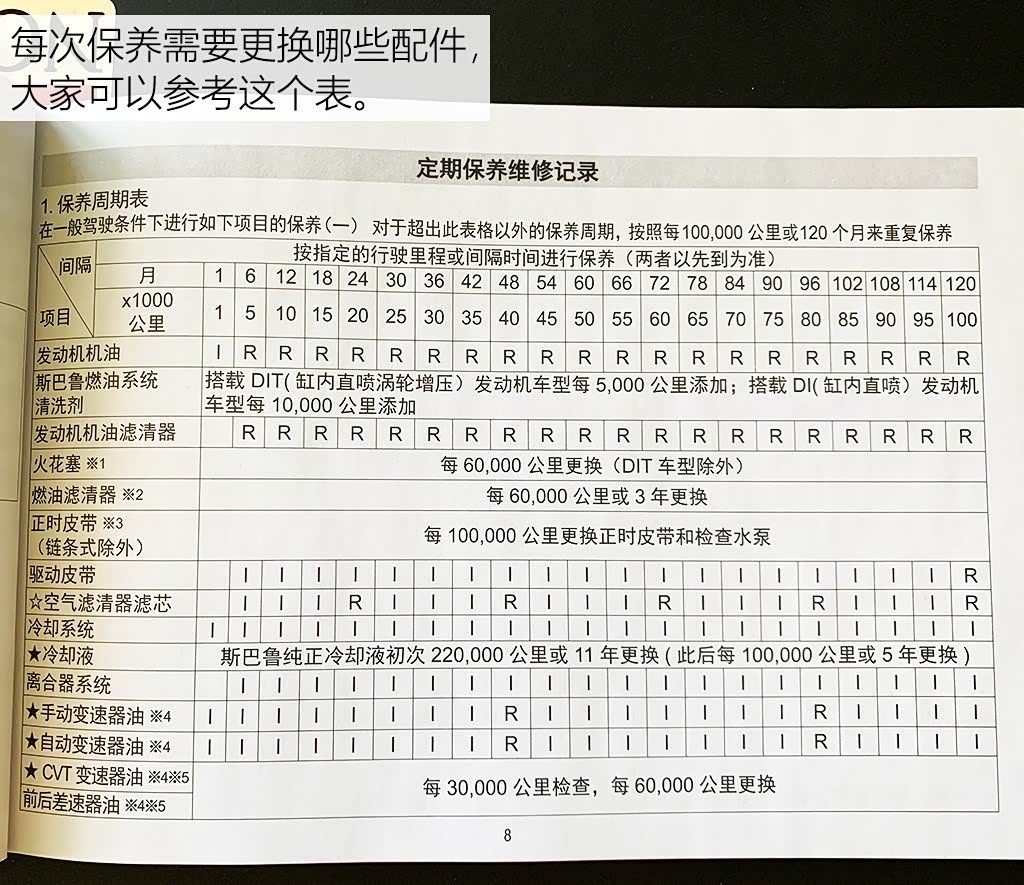 每次保养需要更换哪些配件，
大家可以参考这个表。
定期保养维修记录
1. 保养周期表
在一般驾驶条件下进行如下项目的保养(一) 对于超出此表格以外的保养周期，按照每100,000 公里或120 个月来重复保养
间隔 按指定的行驶里程或间隔时间进行保养（两者以先到为准）
月 1 6 12 18 24 30 36 42 48 54 60 66 72 78 84 90 96 102 108 114 120
项目 x1000 公里 1 5 10 15 20 25 30 35 40 45 50 55 60 65 70 75 80 85 90 95 100
发动机机油 I R R R R R R R R R R R R R R R R R R R R
斯巴鲁燃油系统 搭载 DIT( 缸内直喷涡轮增压）发动机车型每 5,000 公里添加；搭载 DI( 缸内直喷）发动机
清洗剂 车型每 10,000 公里添加
发动机机油滤清器 R R R R R R R R R R R R R R R R R R R R
火花塞 ※1 每 60,000 公里更换（DIT 车型除外）
燃油滤清器 ※2 每 60,000 公里或 3 年更换
正时皮带 ※3
（链条式除外） 每 100,000 公里更换正时皮带和检查水泵
驱动皮带 I I I I I I I I I I I I I I I I I I I R
☆空气滤清器滤芯 I I I R I I I R I I I R I I I R I I I R
冷却系统 I I I I I I I I I I I I I I I I I I I I I
★冷却液 斯巴鲁纯正冷却液初次 220,000 公里或 11 年更换 ( 此后每 100,000 公里或 5 年更换 )
离合器系统 I I I I I I I I I I I I I I I I I I I I
★手动变速器油 ※4 I I I I I I I I R I I I I I I I R I I I I
★自动变速器油 ※4 I I I I I I I I R I I I I I I I R I I I I
★ CVT 变速器油 ※4※5 每 30,000 公里检查，每 60,000 公里更换
前后差速器油 ※4※5
8